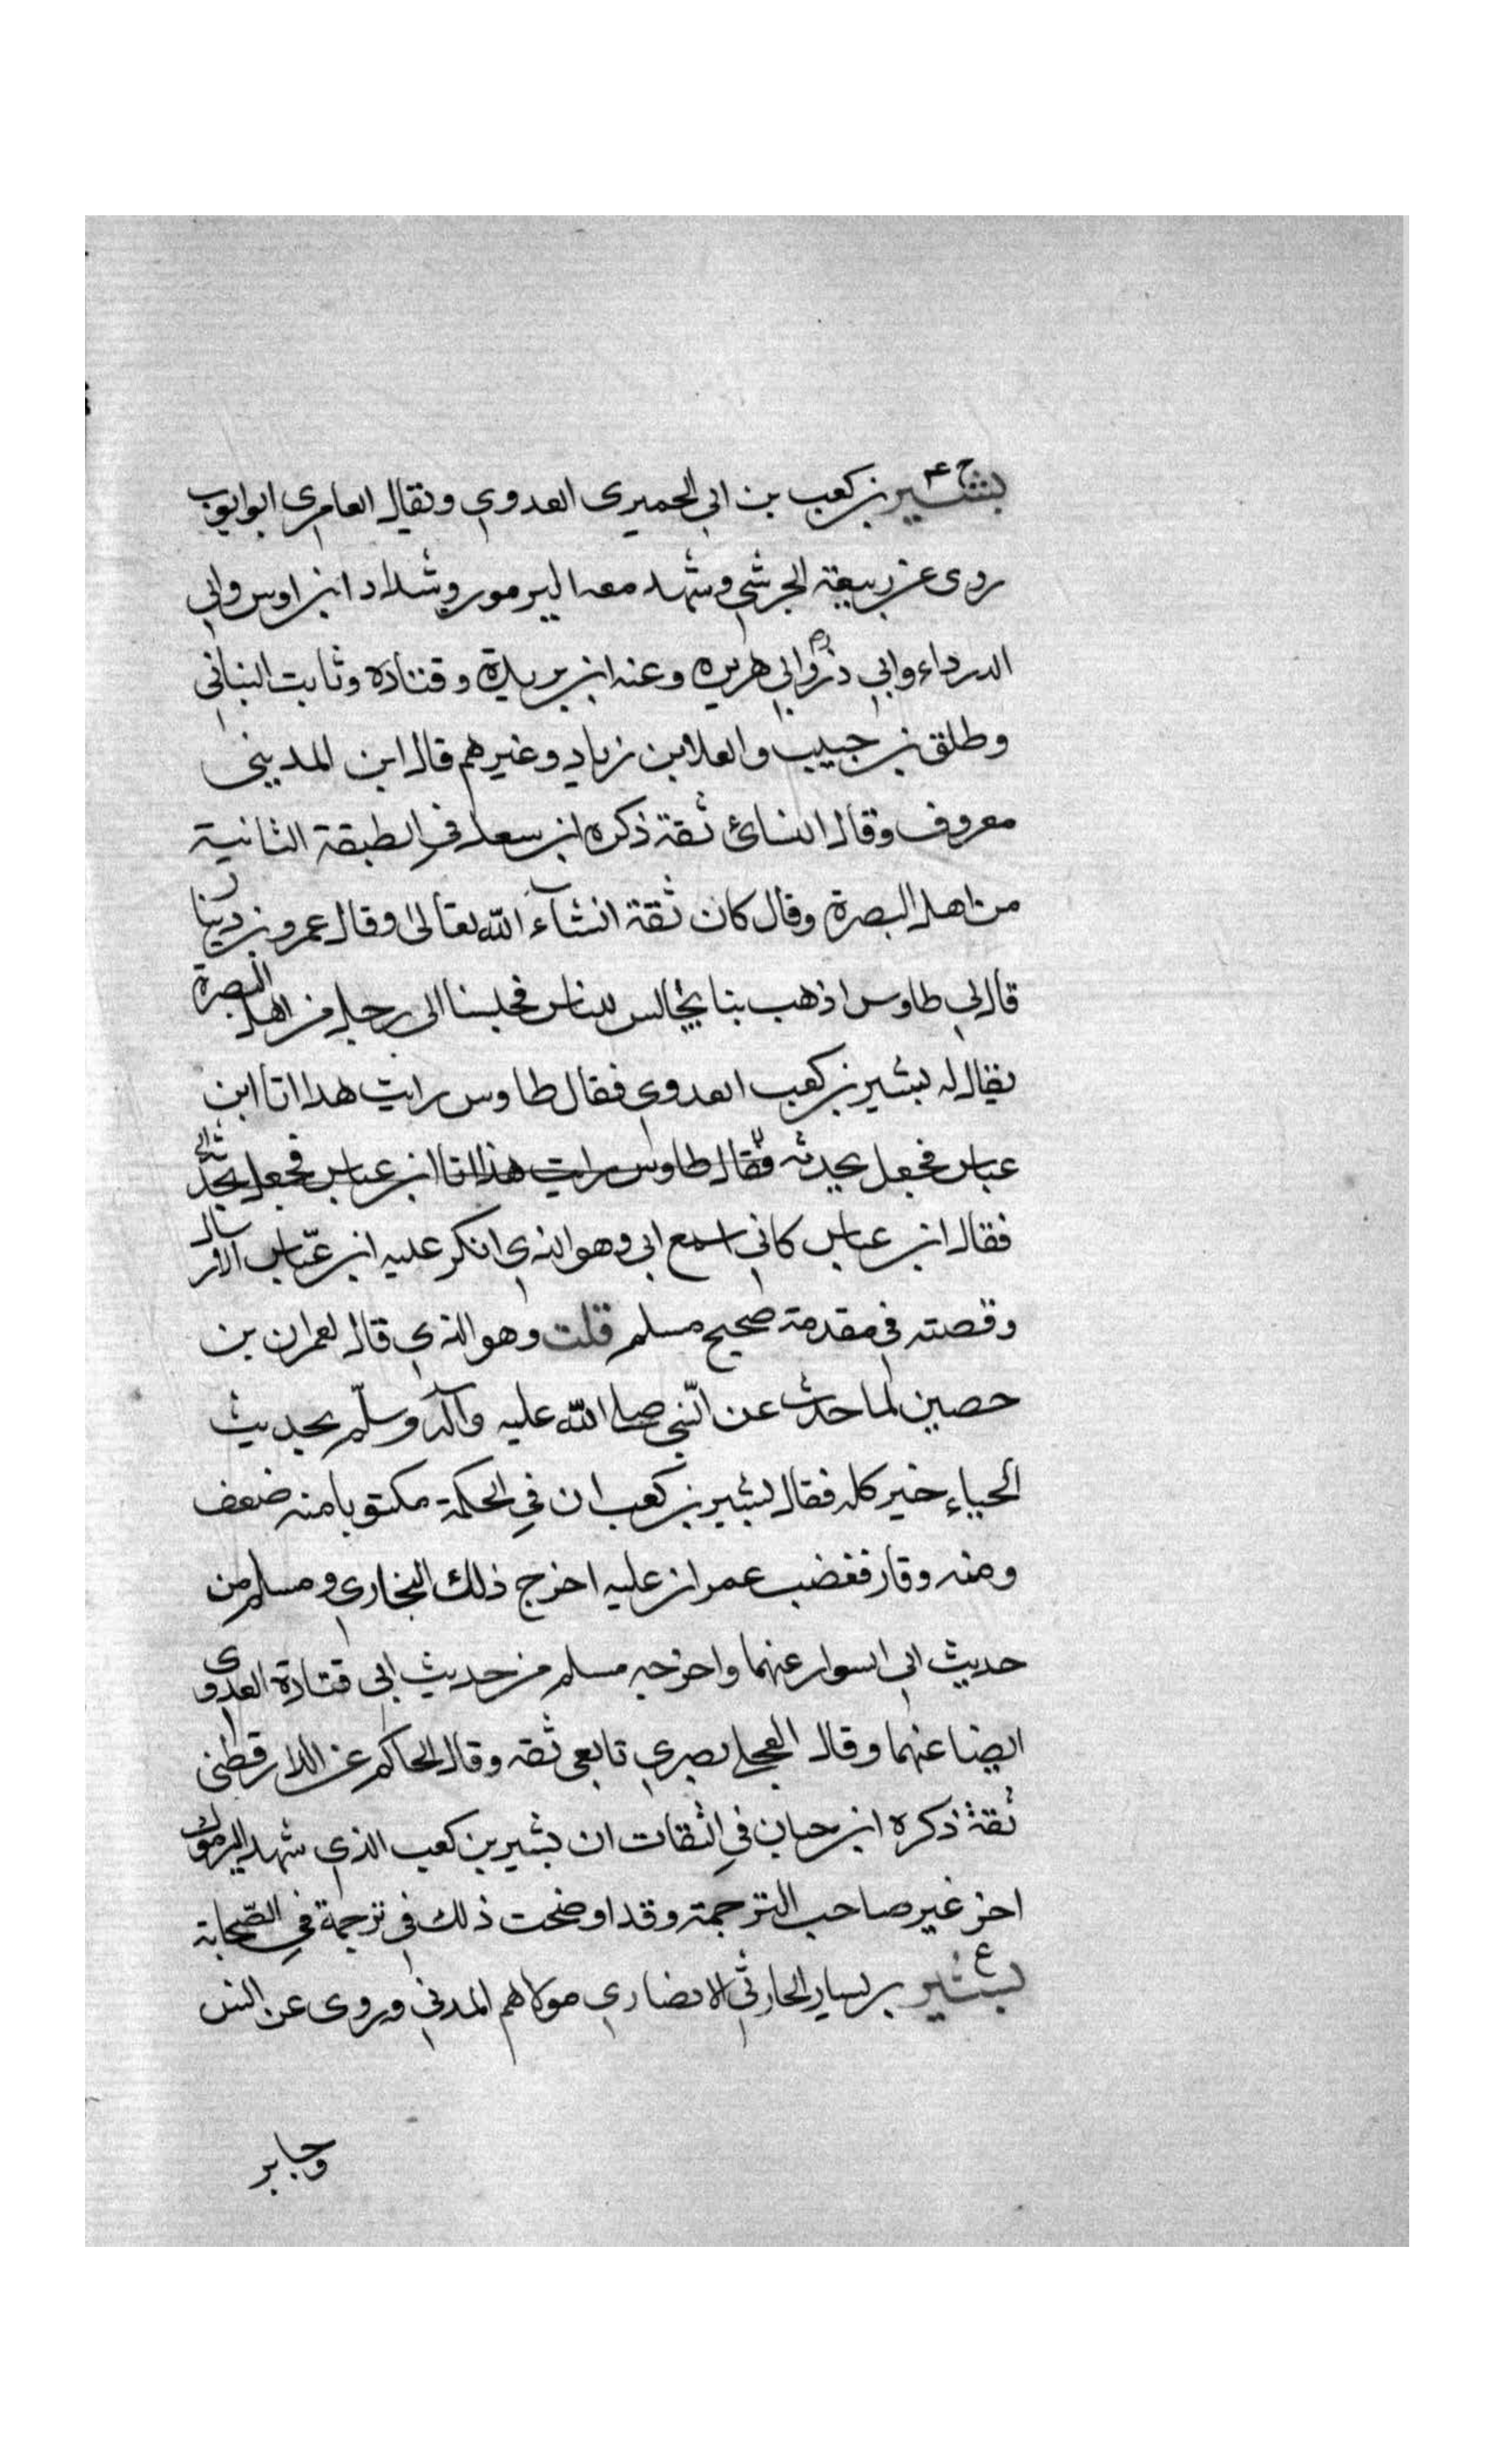 بشير بن كعب بن ابي الحميرى العدوي ويقال العامرى ابو ايوب
روى عن ربيعة الجرشي وشهد معه اليرموك وشداد ابن اوس وابي
الدرداء وابي ذر وابي هريره وعنه ابن بريدة وقتادة وثابت البناني
وطلق بن حبيب والعلا بن زياد وغيرهم قال ابن المديني
معروف وقال النسائ ثقة ذكره ابن سعد في الطبقة الثانية
من اهل البصرة وقال كان ثقة انشآء الله تعالى وقال عمرو بن دينار
قال لي طاوس اذهب بنا نجالس الناس فجلسنا الى رجل من اهل البصرة
يقال له بشير بن كعب العدوي فقال طاوس رايت هذا اتا ابن
عباس فجعل يحدثه فقال طاوس رايت هذا اتا ابن عباس فجعل يحدثه
فقال ابن عباس كاني اسمع ابي وهو الذي انكر عليه ابن عباس الارسال
وقصته في مقدمة صحيح مسلم قلت وهو الذي قال لعمران بن
حصين لما حدث عن النبي صلى الله عليه وآله وسلم بحديث
الحياء خير كله فقال بشير بن كعب ان في الحكمة مكتوبا منه ضعف
ومنه وقار فغضب عمران عليه اخرج ذلك البخاري ومسلم من
حديث ابي السوار عنهما واخرجه مسلم من حديث ابي قتادة العدوى
ايضا عنهما وقال العجلي بصري تابعي ثقه وقال الحاكم عن الدارقطني
ثقة ذكره ابن حبان في الثقات ان بشير بن كعب الذي شهد اليرموك
اخر غير صاحب الترجمة وقد اوضحت ذلك في ترجمة في الصحابة
ع
بشير بن يسار الحارثي الانصاري مولاهم المدني وروى عن انس
وجابر